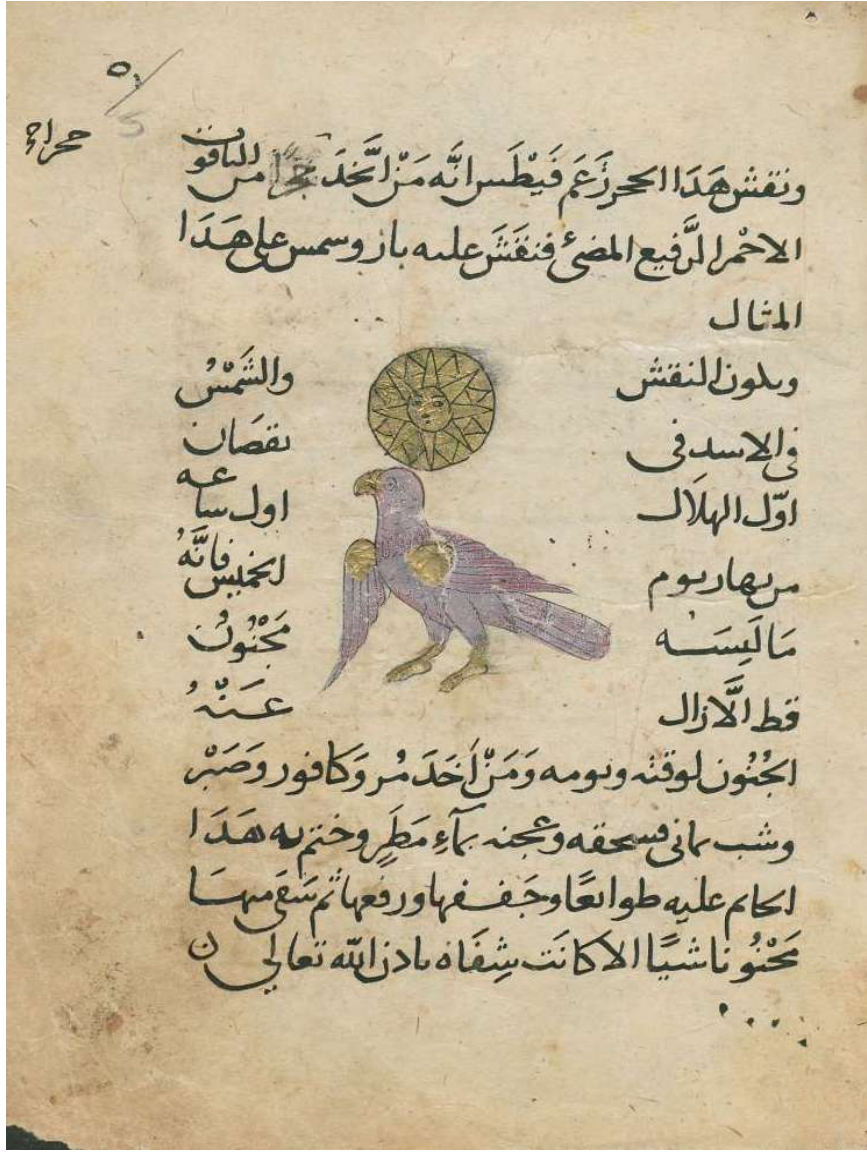 حجر اخ
ونقش هَدَا الحجر زَعَم فَيْطَس انَّه مَنْ اتَّخدَ حجرًا من الياقوت
الاحْمر الرَّفيع المضئ فنقَشَ عليه باز وسمس على هَدَا
المثال
ويكون النقش والشَمْسُ
في الاسد في نقصَان
اوّل الهلَال اول ساعه
من نهار يوم الخميس فانَّهُ
مَا لَبِسَه مَجْنُونٌ
قط الَّا زال عَنْهُ
الجُنُون لوقته ويومه وَمَنْ اَخَدَ مُر وَكافور وَصَبْر
وشب يماني فسحقه وعجنه بمآءِ مَطَرٍ وختم به هَدَا
الخاتم عليه طوابعًا وجَففها ورفعها ثم سَقى منهَا
مَجْنُونا شيًا الا كانَت شِفَاه بادن الله تعالي